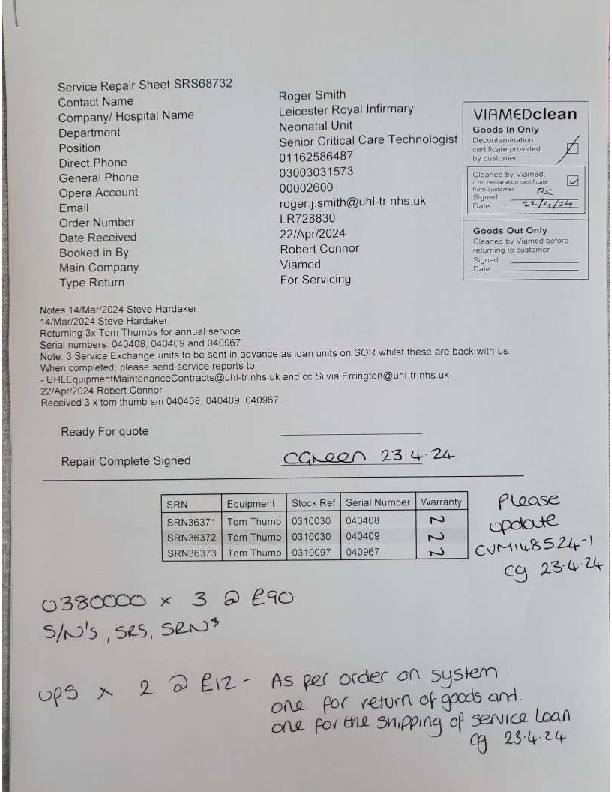 Service Repair Sheet SRS68732
Contact Name Roger Smith
Company/ Hospital Name Leicester Royal Infirmary
Department Neonatal Unit
Position Senior Critical Care Technologist
Direct Phone 01162586487
General Phone 03003031573
Opera Account 00002600
Email rogerj.smith@uhl-tr.nhs.uk
Order Number LR728830
Date Received 22/Apr/2024
Booked in By Robert Connor
Main Company Viamed
Type Return For Servicing
VIAMEDclean
Goods In Only
Decontamination
certificate provided
by customer
Cleaned by Viamed
if no declaration certificate
from customer
Signed RC
Date 22/4/24
Goods Out Only
Cleaned by Viamed before
returning to customer
Signed
Date
Notes 14/Mar/2024 Steve Hardaker
14/Mar/2024 Steve Hardaker
Returning 3x Tom Thumbs for annual service
Serial numbers: 040408, 040409 and 040967
Note: 3 Service Exchange units to be sent in advance as loan units on SOR whilst these are back with us.
When completed, please send service reports to
- UHLEquipmentMaintenanceContracts@uhl-tr.nhs.uk and cc Silvia Errington@uhl-tr.nhs.uk
22/Apr/2024 Robert Connor
Received 3 x tom thumb s/n 040408, 040409, 040967
Ready For quote
Repair Complete Signed CGreen 23.4.24
SRN Equipment Stock Ref Serial Number Warranty
SRN36371 Tom Thumb 0310030 040408 N
SRN36372 Tom Thumb 0310030 040409 N
SRN36373 Tom Thumb 0310097 040967 N
Please
update
CVM148524-1
cg 23.4.24
0380000 x 3 @ £90
S/N's, SRS, SRN's
UPS x 2 @ £12 - As per order on system.
one for return of goods and.
one for the shipping of service loan
cg 23.4.24